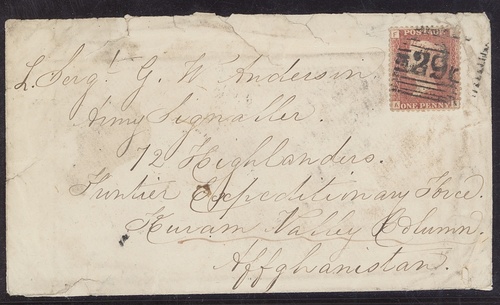 L. Sergt. G. W. Anderson.
Army Signaller.
72 Highlanders.
Frontier Expeditionary Force.
Kuram Valley Column.
Affghanistan.
POSTAGE
ONE PENNY